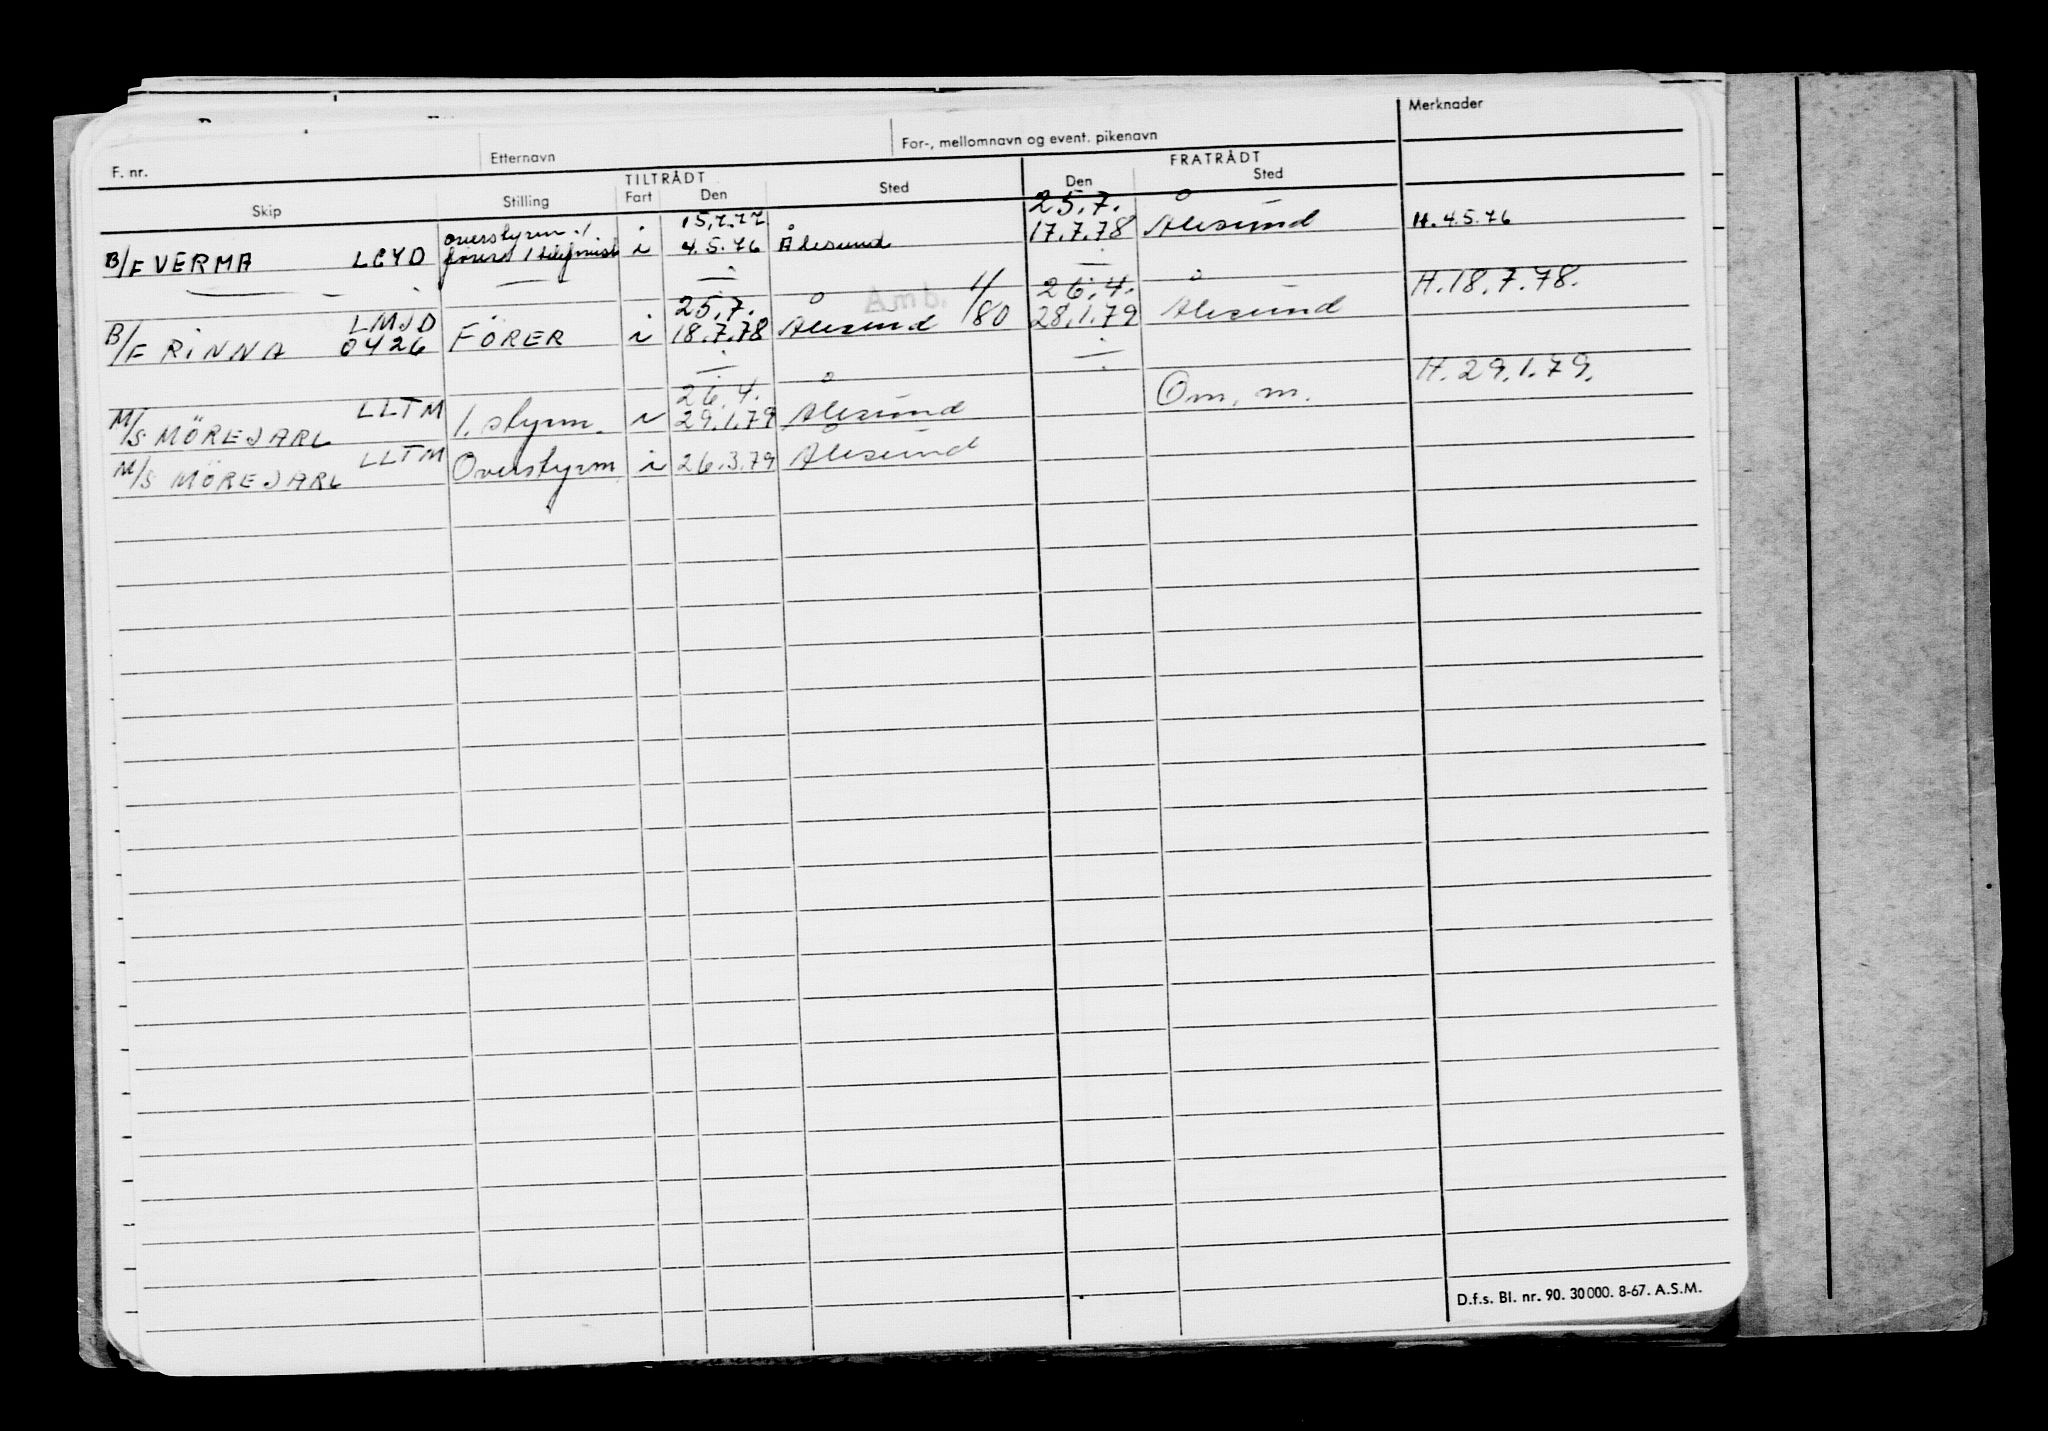 Merknader
F. nr. Etternavn For-, mellomnavn og event. pikenavn
TILTRÅDT FRATRÅDT
Skip Stilling Fart Den Sted Den Sted
15.7.77 25.7.
overstyrm./ i
B/F VERMA LCYD fører/telefonist i 4.5.76 Ålesund 17.7.78 Ålesund H. 4.5.76
Amb. 4/80
25.7. 26.4. H.18.7.78.
B/F RINNA LMJD 0426 FÖRER i 18.7.78 Ålesund 28.1.79 Ålesund
26.4. H.29.1.79.
M/S MÖREJARL LLTM 1. styrm. i 29.1.79 Ålesund Om. m.
M/S MÖREJARL LLTM Overstyrm. i 26.3.79 Ålesund
D.f.s. Bl. nr. 90. 30000. 8-67. A.S.M.